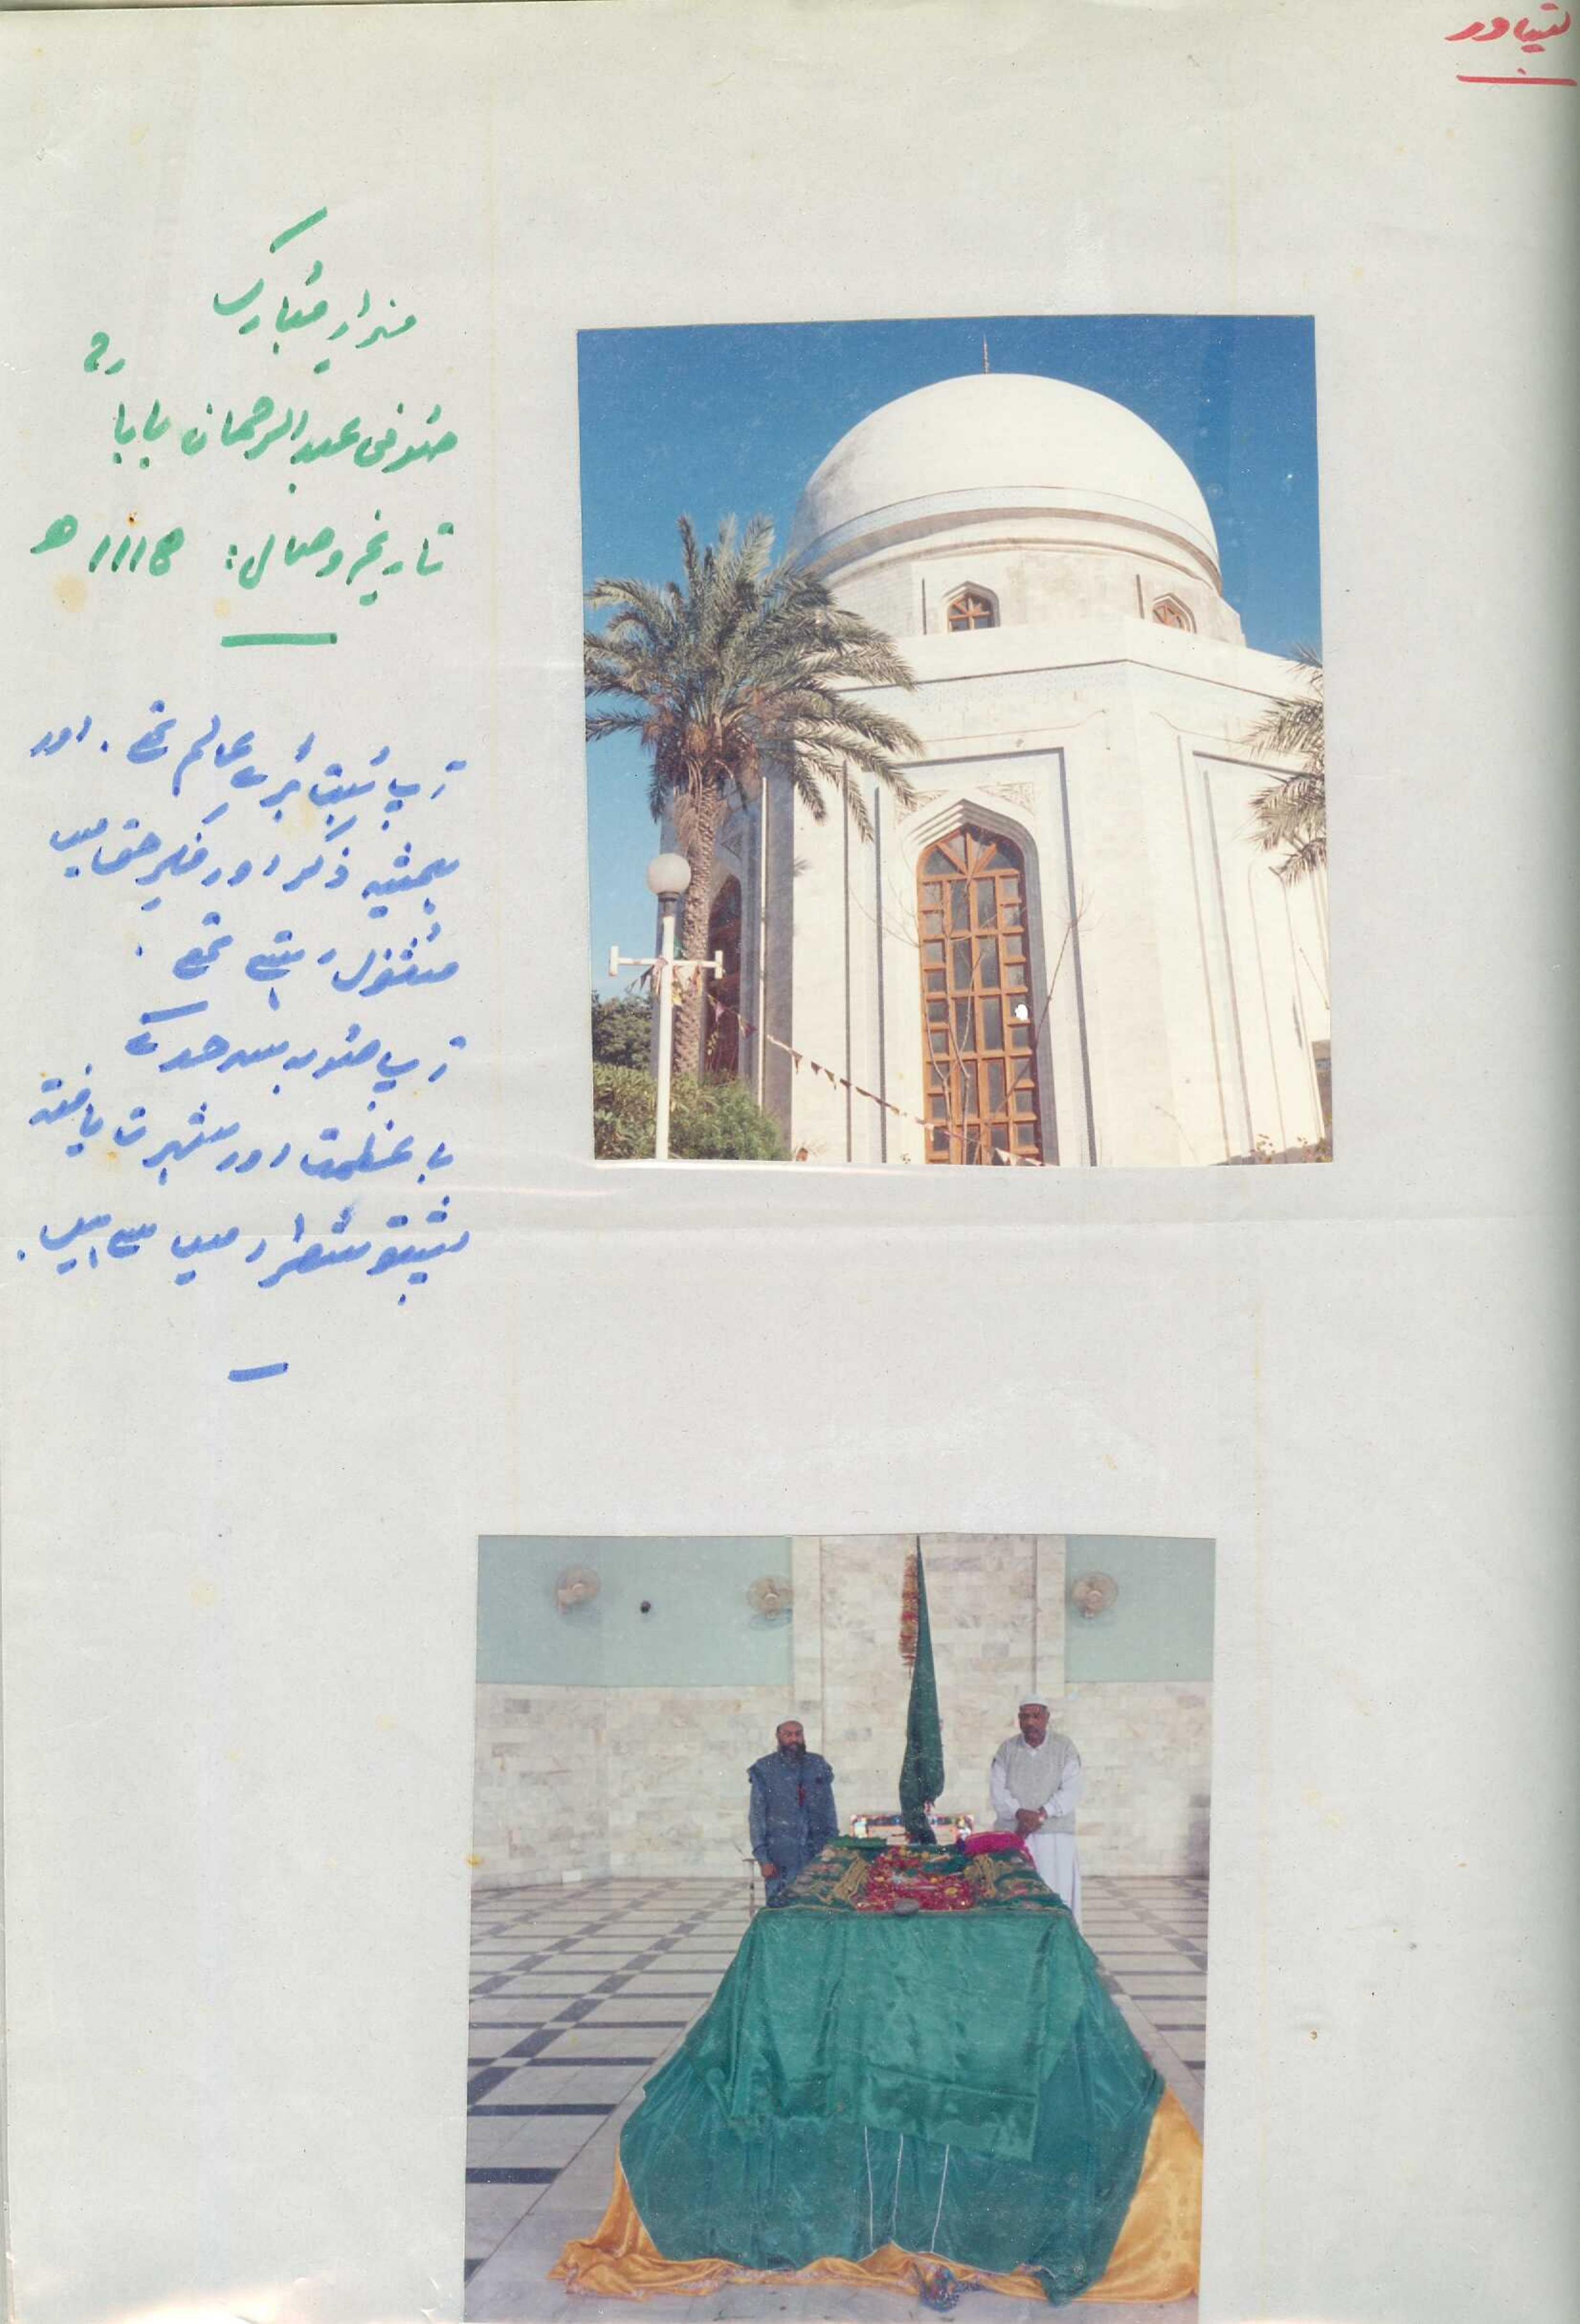 پشاور
مزارِ مُبارک
صُوفی عبدالرحمان بابا رح
تاریخِ وصال: ۱۱۱۸ ھ
آپ بُہت بڑے عالم تھے۔ اور
ہمیشہ ذکر اور فکرِ حق میں
مشغُول رہتے تھے۔
آپ صُوبہ سرحد کے
با عظمت اور شہرت یافتہ
پشتو شُعراء میں سے ہیں۔